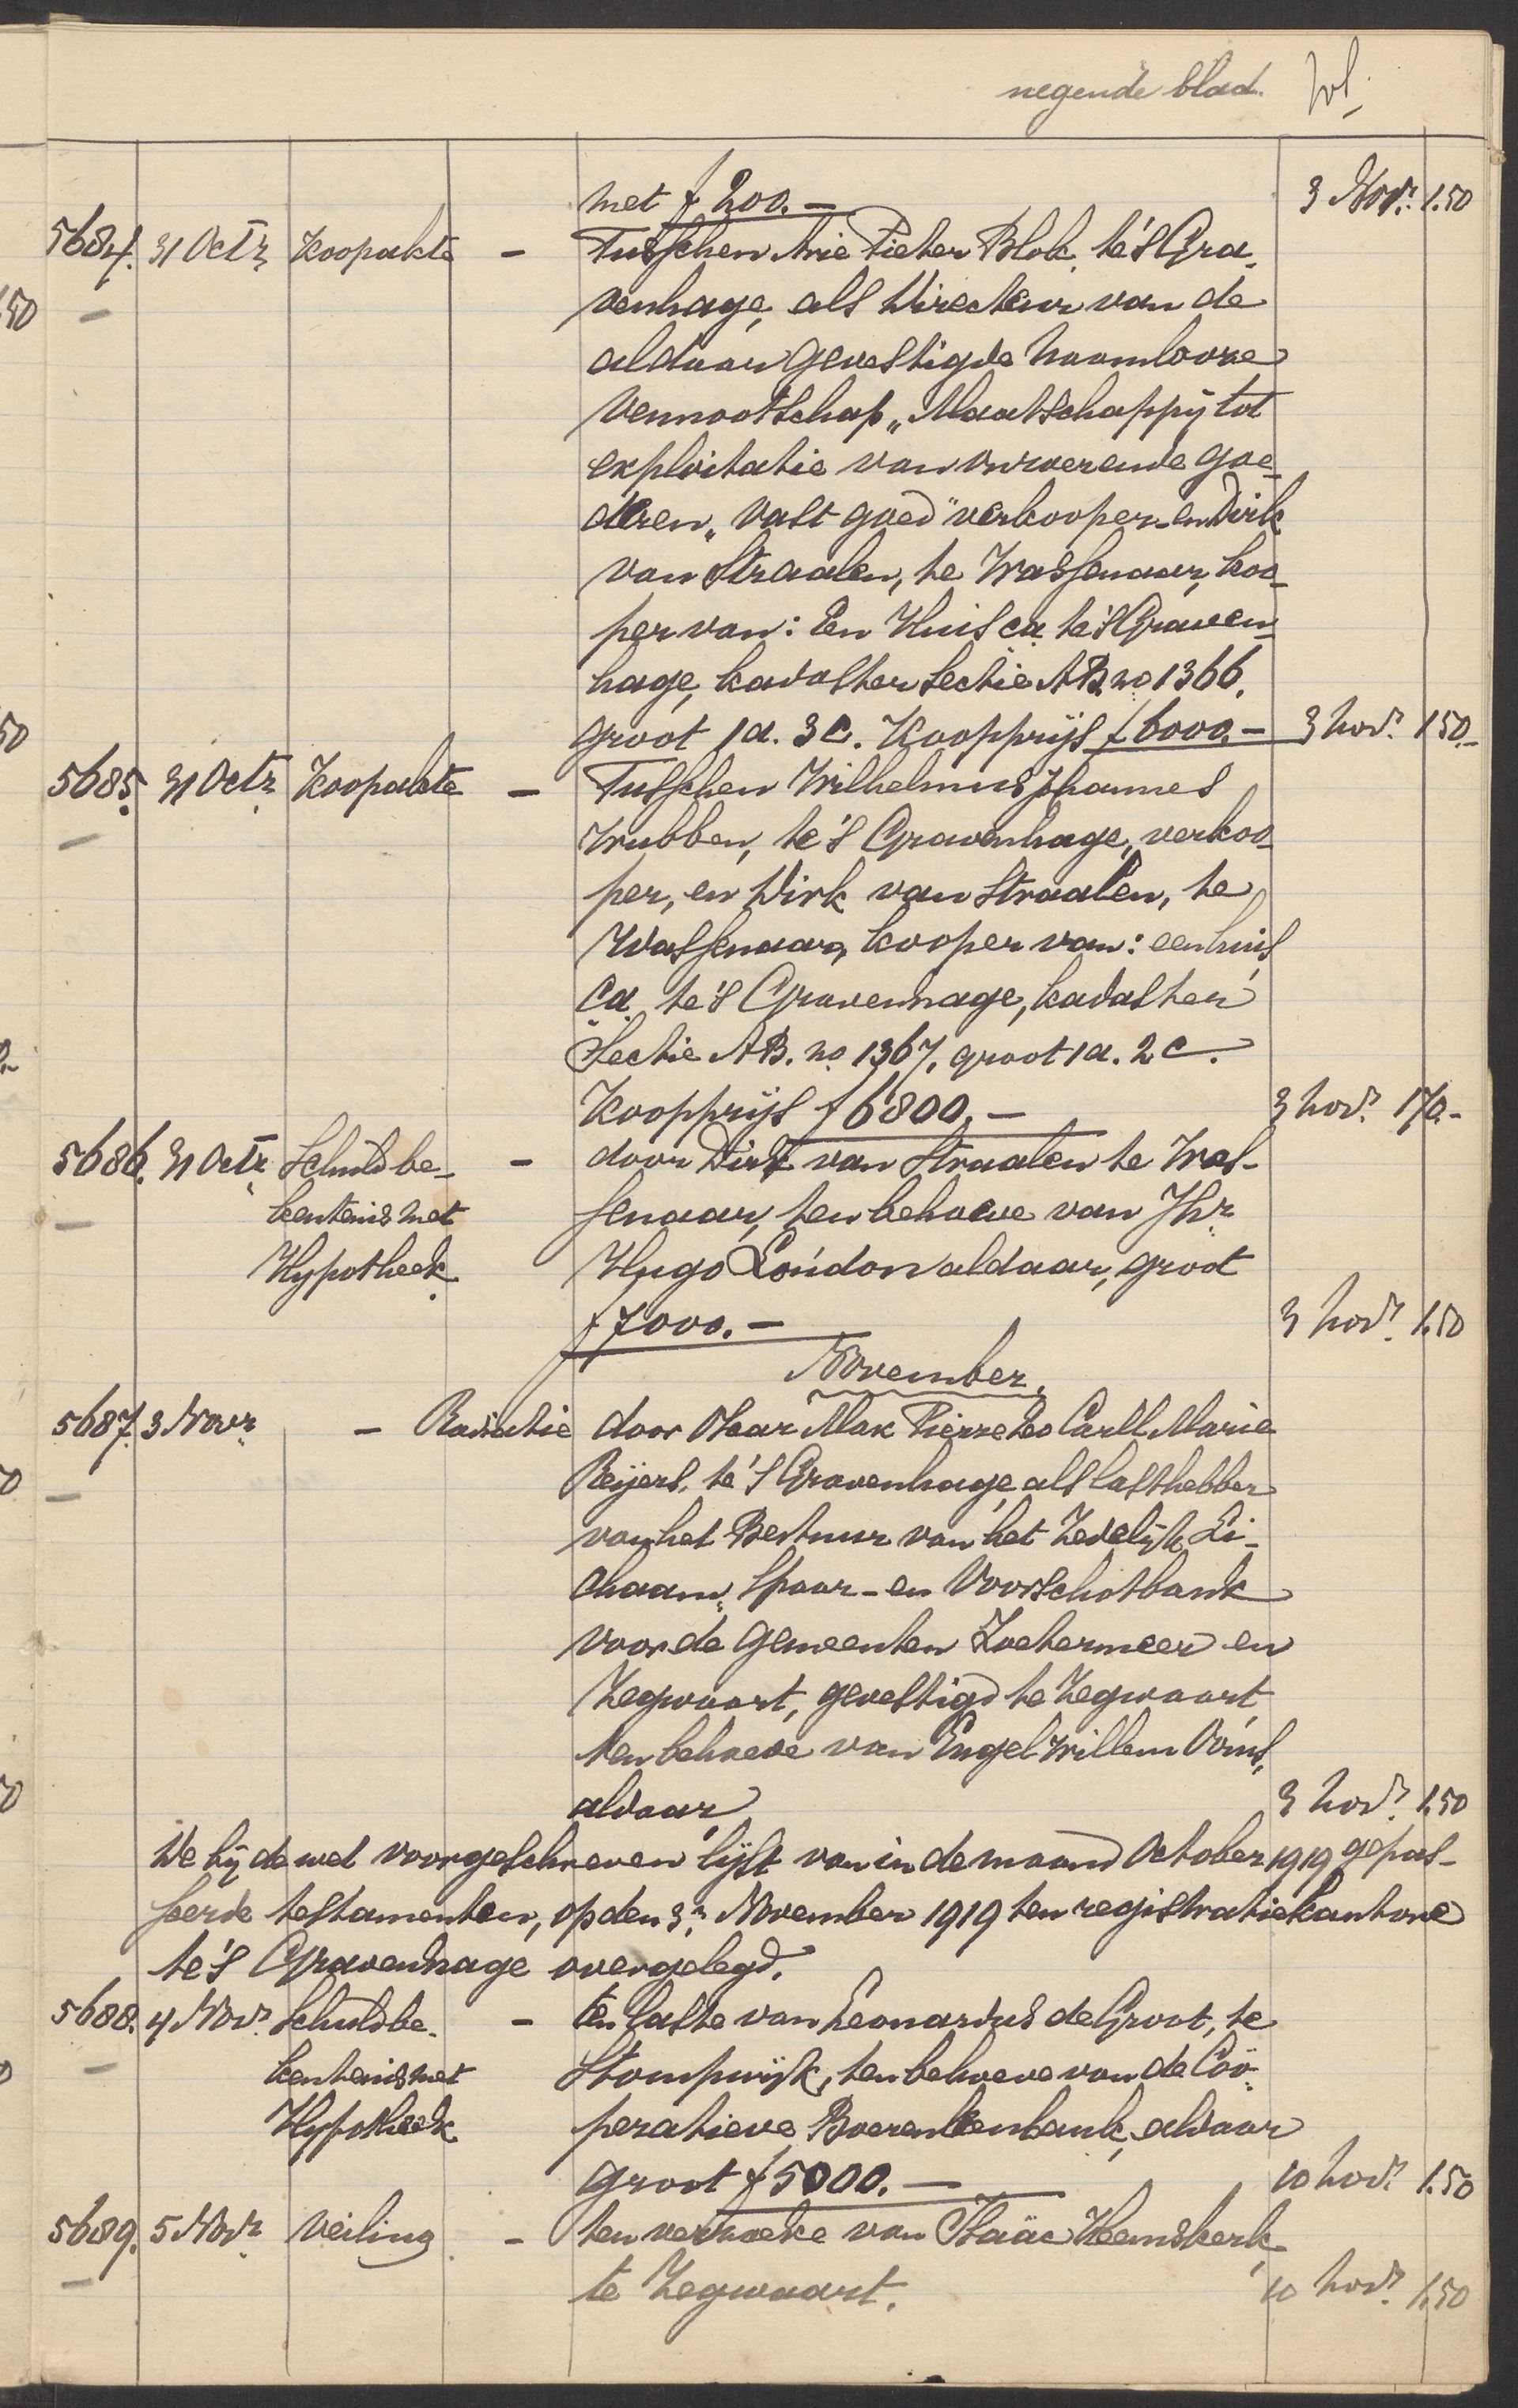 negende blad.
met f 200.- 3 Novr. 1.50
5684. 31 Octr. Koopakte - Tusschen Arie Pieter Blok, te 's Gra-
venhage, als Directeur van de
aldaar gevestigde Naamlooze
Vennootschap „Maatschappij tot
exploitatie van onroerende goe-
deren „Vast goed" verkooper en Dirk
van Straalen, te Wassenaar, koo-
per van: Een Huis ca. te 's Graven-
hage, kadaster Sectie AB. no 1366,
groot 1 a. 3 c. Koopprijs f 6000.- 3 Novr. 150.-
5685. 31 Octr. Koopakte - Tusschen Wilhelmus Johannes
Wubben, te 's Gravenhage, verkoo-
per, en Dirk van Straalen, te
Wassenaar, kooper van: een huis
ca. te 's Gravenhage, kadaster
Sectie AB. no 1367, groot 1 a. 2 c.
Koopprijs f 6800.- 3 Novr. 170.-
5686. 31 Octr. Schuldbe- - door Dirk van Straalen te Was-
kentenis met senaar, ten behoeve van Jhr.
Hypotheek. Hugo Loudon aldaar, groot
f 7000.- 3 Novr. 1.50
November.
5687. 3 Novr. - Radiatie door Oscar Max Pierre Leo Carll Marie
Reijers, te 's Gravenhage, als lasthebber
van het Bestuur van het Zedelijk Li-
chaam „Spaar- en Voorschotbank
voor de Gemeenten Zoetermeer en
Zegwaart, gevestigd te Zegwaart,
ten behoeve van Engel Willem
aldaar, 3 Novr. 1.50
De bij de wet voorgeschreven lijst van in de maand October 1919 gepas-
seerde testamenten, op den 3n November 1919 ten registratiekantore
te 's Gravenhage overgelegd.
5688. 4 Novr. Schuldbe- - ten laste van Leonardus de Groot, te
kentenis met Stompwijk, ten behoeve van de Coö-
Hypotheek peratieve Boerenleenbank, aldaar
groot f 5000.- 10 Novr. 1.50
5689. 5 Novr. Veiling - ten verzoeke van Isaäc Heemskerk
te Zegwaart. 10 Novr. 1.50